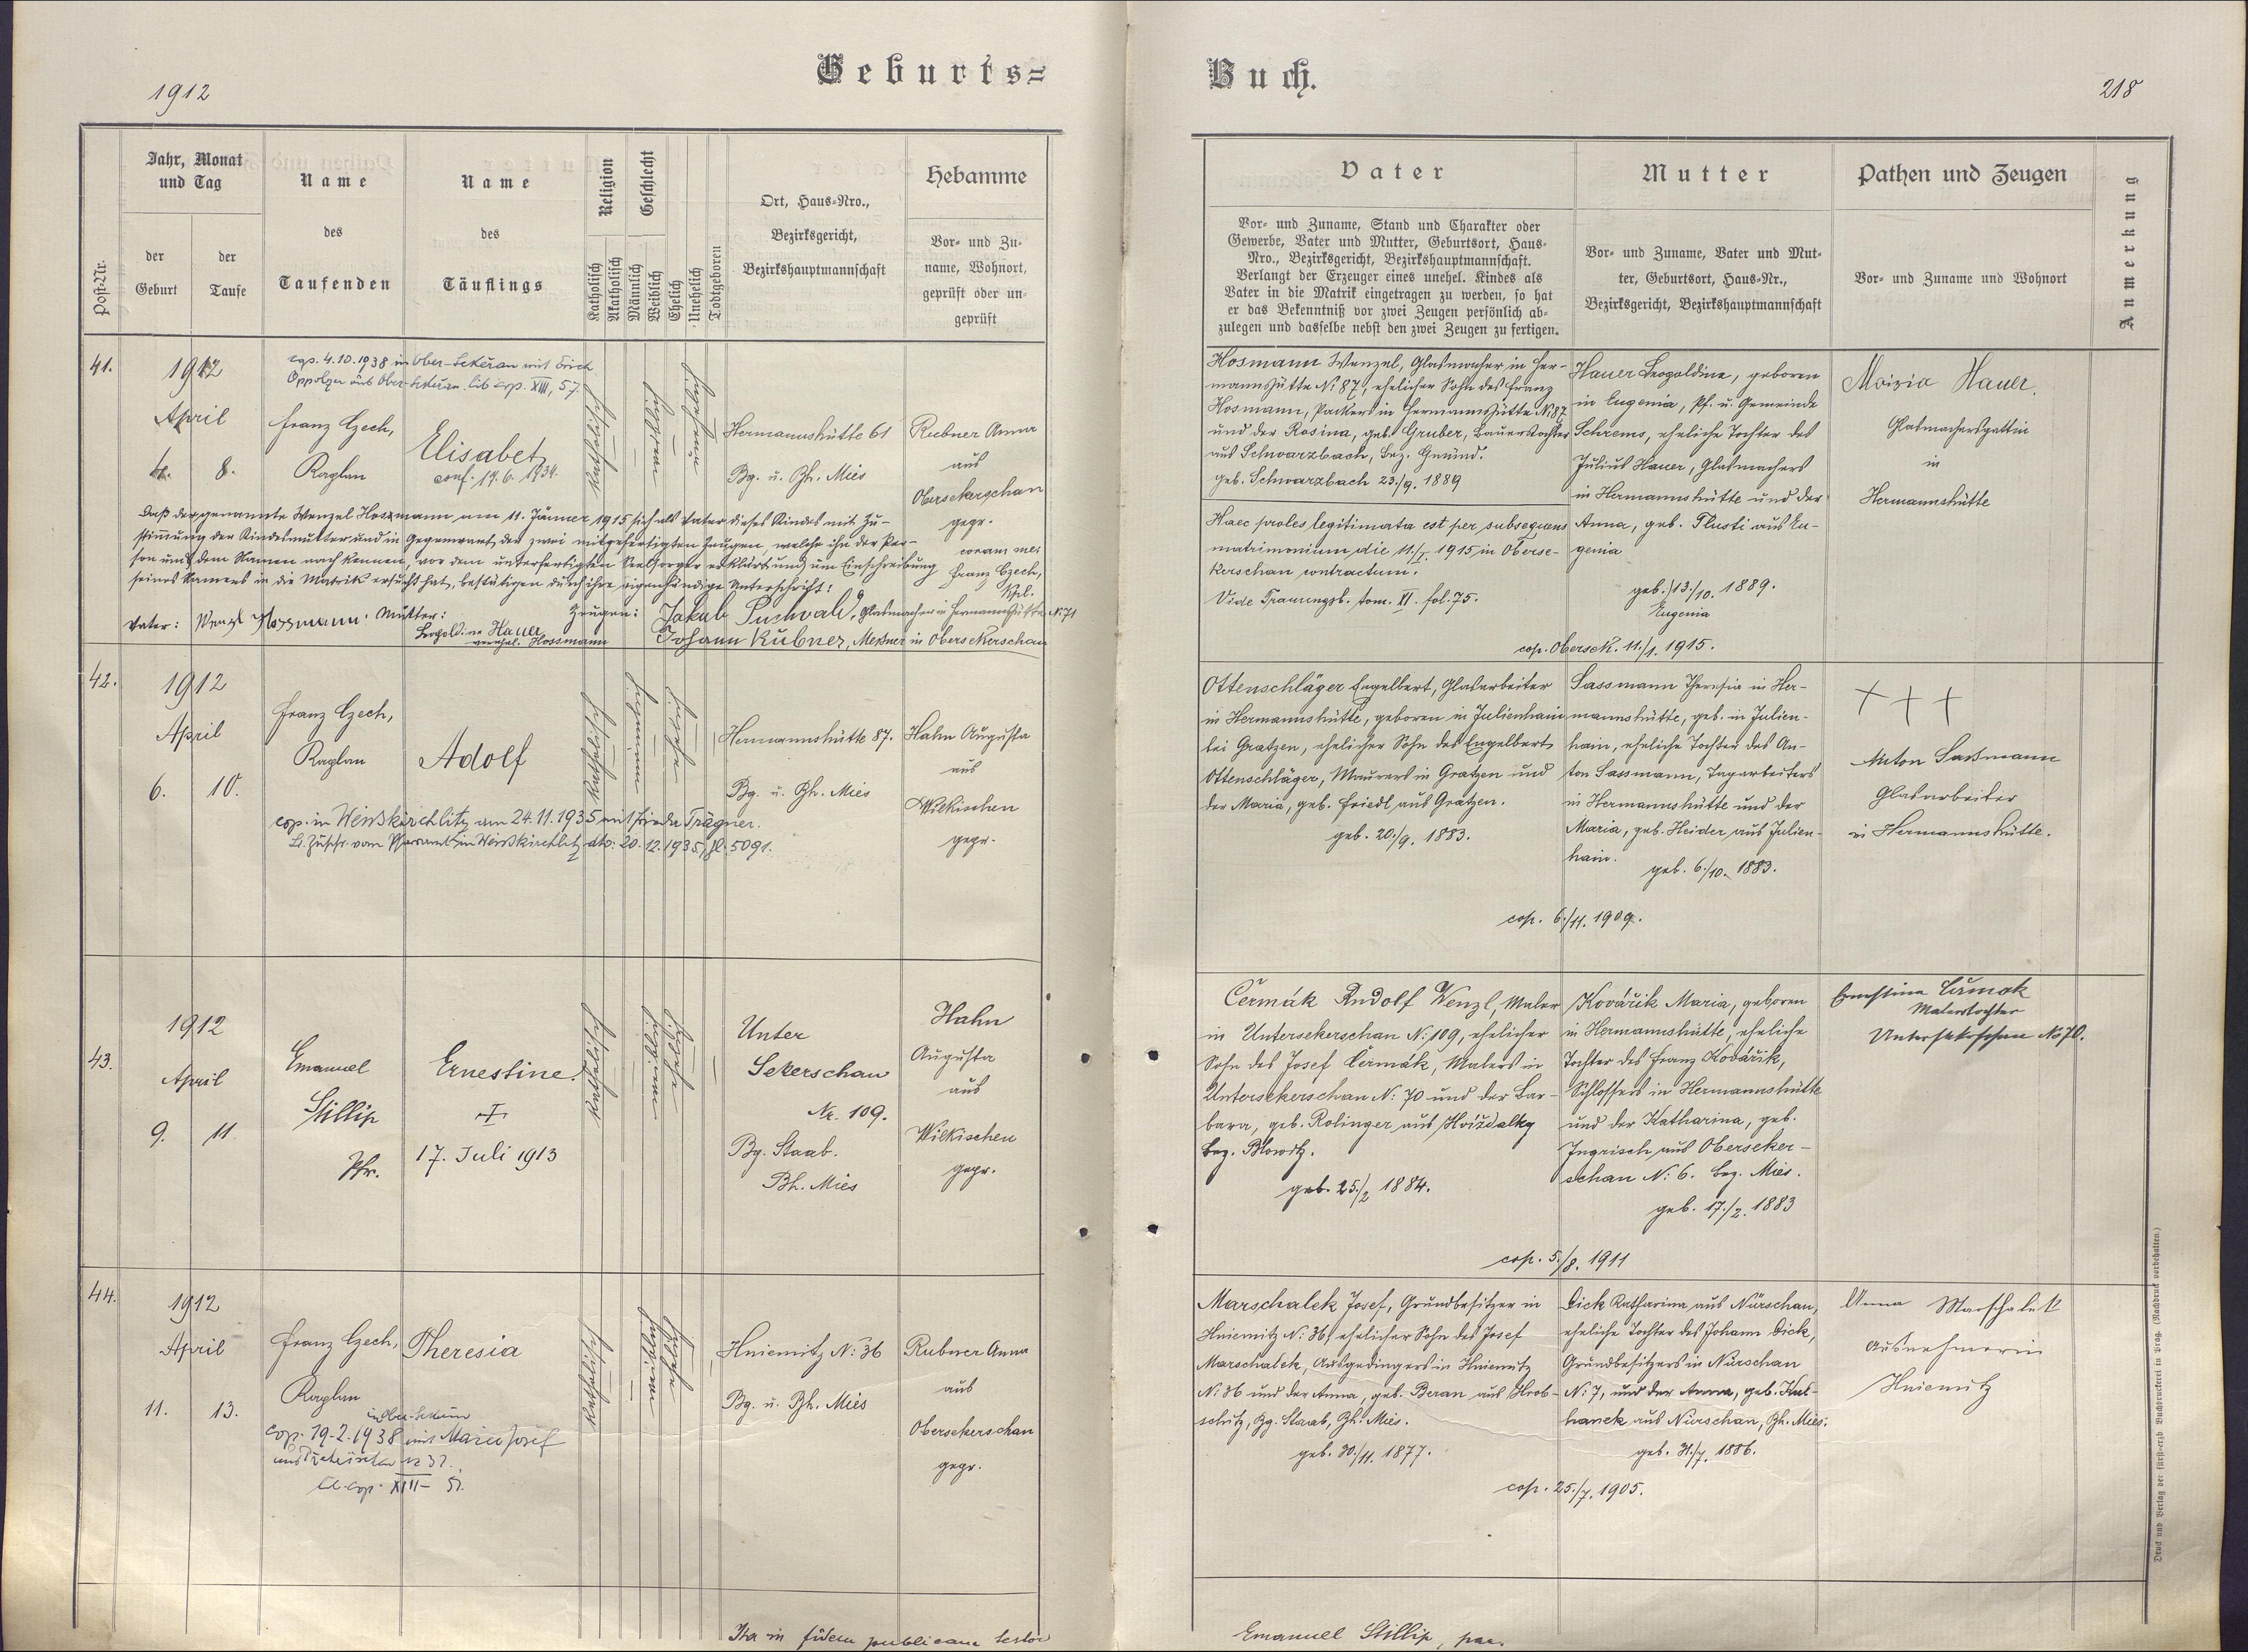 1912
Geburts=
Buch.
218
Post-Nr.
Jahr, Monat
und Tag
der
Geburt
der
Taufe
Name
des
Taufenden
Name
des
Täuflings
Religion
Katholisch
Akatholisch
Geschlecht
Männlich
Weiblich
Ehelich
Unehelich
Todtgeboren
Ort, Haus-Nro.,
Bezirksgericht,
Bezirkshauptmannschaft
Hebamme
Vor- und Zu-
name, Wohnort,
geprüft oder un-
geprüft
Vater
Vor- und Zuname, Stand und Charakter oder
Gewerbe, Vater und Mutter, Geburtsort, Haus-
Nro., Bezirksgericht, Bezirkshauptmannschaft.
Verlangt der Erzeuger eines unehel. Kindes als
Vater in die Matrik eingetragen zu werden, so hat
er das Bekenntniß vor zwei Zeugen persönlich ab-
zulegen und dasselbe nebst den zwei Zeugen zu fertigen.
Mutter
Vor- und Zuname, Vater und Mut-
ter, Geburtsort, Haus-Nr.,
Bezirksgericht, Bezirkshauptmannschaft
Pathen und Zeugen
Vor- und Zuname und Wohnort
Anmerkung
41.
1912
April
8.
4.10.1938 in Ober-Sekeran mit Erich
Oppolzer aus Ober-Sekeran lib. cop. XIII, 57.
Franz Czech,
Kaplan
Elisabet
conf. 17.6.1934.
Katholisch
Hermannshütte 61
Bg. u. Bh. Mies
Rubner Anna
aus
Obersekerschan
gepr.
Daß der genannte Wenzel Hossmann am 11. Jänner 1915 sich als Vater dieses Kindes mit Zu-
stimmung der Kindesmutter und in Gegenwart der zwei mitgefertigten Zeugen, welche ihn der Per-
son und dem Namen nach kennen, vor dem unterfertigten Seelsorger erklärt und um Einschreibung
seines Namens in die Matrik ersucht hat, bestätigen durch ihre eigenhändige Unterschrift:
coram me:
Franz Czech,
Kpl.
Vater: Wenzl Hossmann. Mutter:
Leopoldine Hauer
verehel. Hossmann
Zeugen: Jakob Puchwald, Glasmacher in Hermannshütte N: 71
Johann Rubner, Meßner in Obersekerschan
Hosmann Wenzel, Glasmacher in Her-
mannshütte N: 87, ehelicher Sohn des Franz
Hosmann, Packers in Hermannshütte N: 87
und der Rosina, geb. Gruber, Bauerstochter
aus Schwarzbach, Bez. Gmünd.
geb. Schwarzbach 23./9. 1889
Haec proles legitimata est per subsequens
matrimonium die 11./I. 1915 in Oberse-
kerschan contractum.
Vide Trauungsb. tom. XI. fol. 75.
Hauer Leopoldine, geboren
in Eugenia, Pf. u. Gemeinde
Schrems, eheliche Tochter des
Julius Hauer, Glasmachers
in Hermannshütte und der
Anna, geb. Plusti aus Eu-
genia
geb. 13./10. 1889.
Eugenia
cop. Obersek. 11./1. 1915.
Aloisia Hauer
Glasmachersgattin
in
Hermannshütte
42.
1912
April
6. 10.
Franz Czech,
Kaplan
Adolf
Katholisch
Hermannshütte 87.
Bg. u. Bh. Mies
Hahn Augusta
aus
Wilkischen
gepr.
cop. in Weisskirchlitz am 24.11.1935 mit Frieda Trägner.
Lt. Zuschr. vom Pfarramt in Weisskirchlitz dto: 20.12.1935, Zl. 5091.
Ottenschläger Engelbert, Glasarbeiter
in Hermannshütte, geboren in Julienhain
bei Gratzen, ehelicher Sohn des Engelbert
Ottenschläger, Maurers in Gratzen und
der Maria, geb. Friedl aus Gratzen.
geb. 20./9. 1883.
Sassmann Theresia in Her-
mannshütte, geb. in Julien-
hain, eheliche Tochter des An-
ton Sassmann, Tagarbeiters
in Hermannshütte und der
Maria, geb. Heider aus Julien-
hain.
geb. 6./10. 1883.
cop. 6./11. 1909.
+ + +
Anton Sassmann
Glasarbeiter
in Hermannshütte.
43.
1912
April
9. 11.
Emanuel
Stillip
Pfr.
Ernestine.
†
17. Juli 1913
Katholisch
Unter
Sekerschan
Nr. 109.
Bg. Staab.
Bh. Mies
Hahn
Augusta
aus
Wilkischen
gepr.
Čermák Rudolf Wenzl, Maler
in Untersekerschan N: 109, ehelicher
Sohn des Josef Čermák, Malers in
Untersekerschan N: 70 und der Bar-
bara, geb. Rolinger aus Hvíždalky
Bez. Blowitz.
geb. 25./2 1884.
Kovářik Maria, geboren
in Hermannshütte, eheliche
Tochter des Franz Kovářik,
Schlossers in Hermannshütte
und der Katharina, geb.
Ingrisch aus Oberseker-
schan N: 6. Bez. Mies.
geb. 17./2. 1883
cop. 5./8. 1911
Ernestine Čermak
Malerstochter
Untersekerschan No 70.
44.
1912
April
11. 13.
Franz Czech,
Kaplan
Theresia
Katholisch
Hniemitz N: 36
Bg. u. Bh. Mies
Rubner Anna
aus
Obersekerschan
gepr.
cop. 19.2.1938 mit Josef
XIII – 51.
Marschalek Josef, Grundbesitzer in
Hniemitz N: 36, ehelicher Sohn des Josef
Marschalek, Ausgedingers in Hniemitz
N: 36 und der Anna, geb. Beran aus Hrob-
schitz, Bg. Staab, Bh. Mies.
geb. 30./11. 1877.
Dick Katharina aus Nürschan,
eheliche Tochter des Johann Dick,
Grundbesitzers in Nürschan
N: 7, und der Anna, geb. Kul-
hanek aus Nürschan, Bh. Mies.
geb. 31./7. 1886.
cop. 25./7. 1905.
Anna Marschalek
Ausnehmerin
Hniemitz
Ita in fidem publicam testor
Emanuel Stillip, par.
Druck und Verlag der fürst-erzb. Buchdruckerei in Prag. (Nachdruck vorbehalten.)